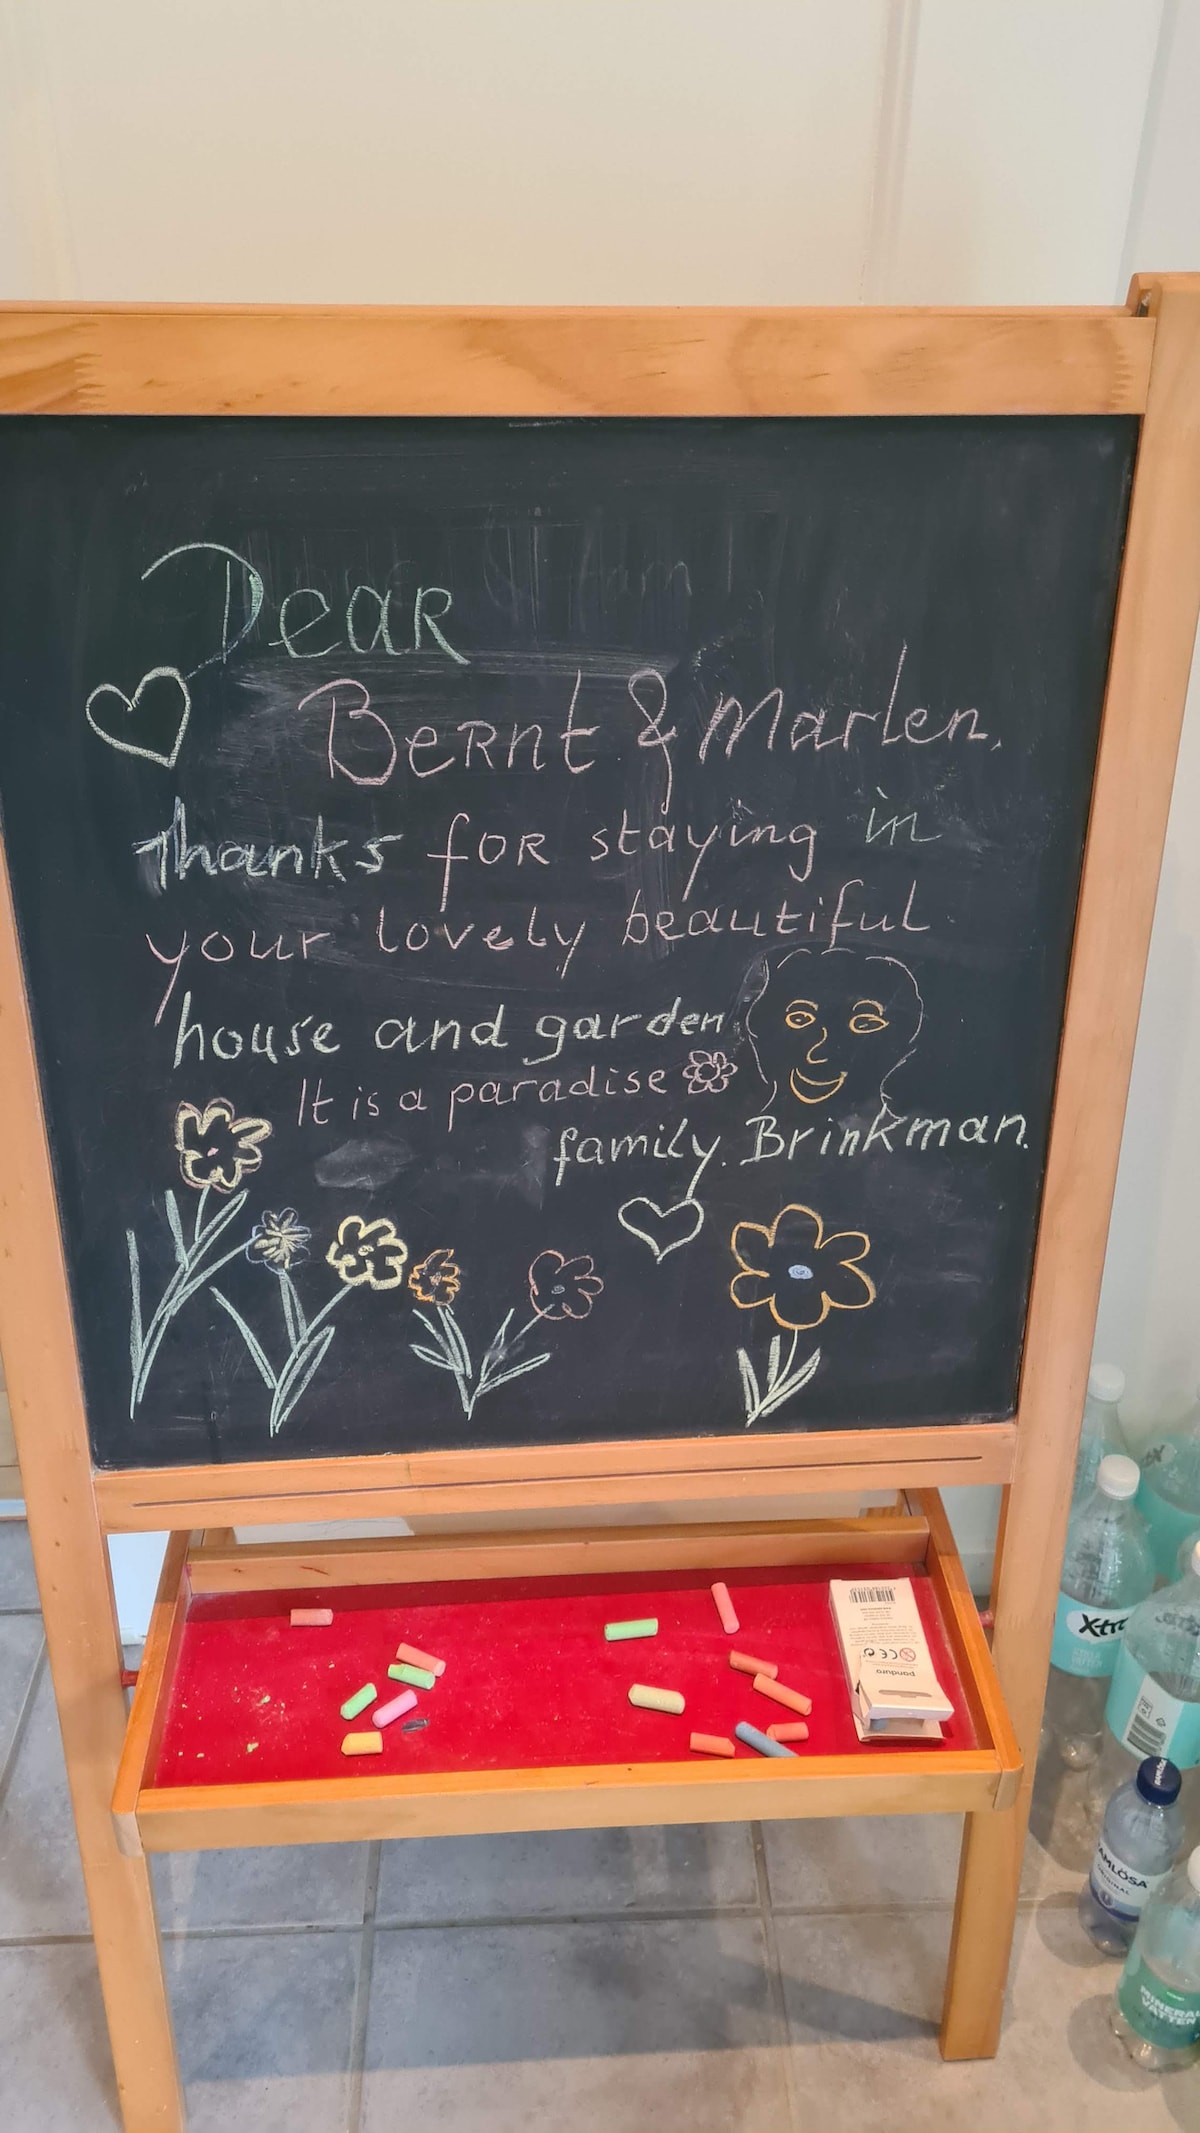 Dear
Bernt & Marlen,
Thanks for staying in
your lovely beautiful
house and garden
It is a paradise
family. Brinkman.
panduro
CE
X-tra
RAMLÖSA
ORIGINAL
MINERAL
VATTEN